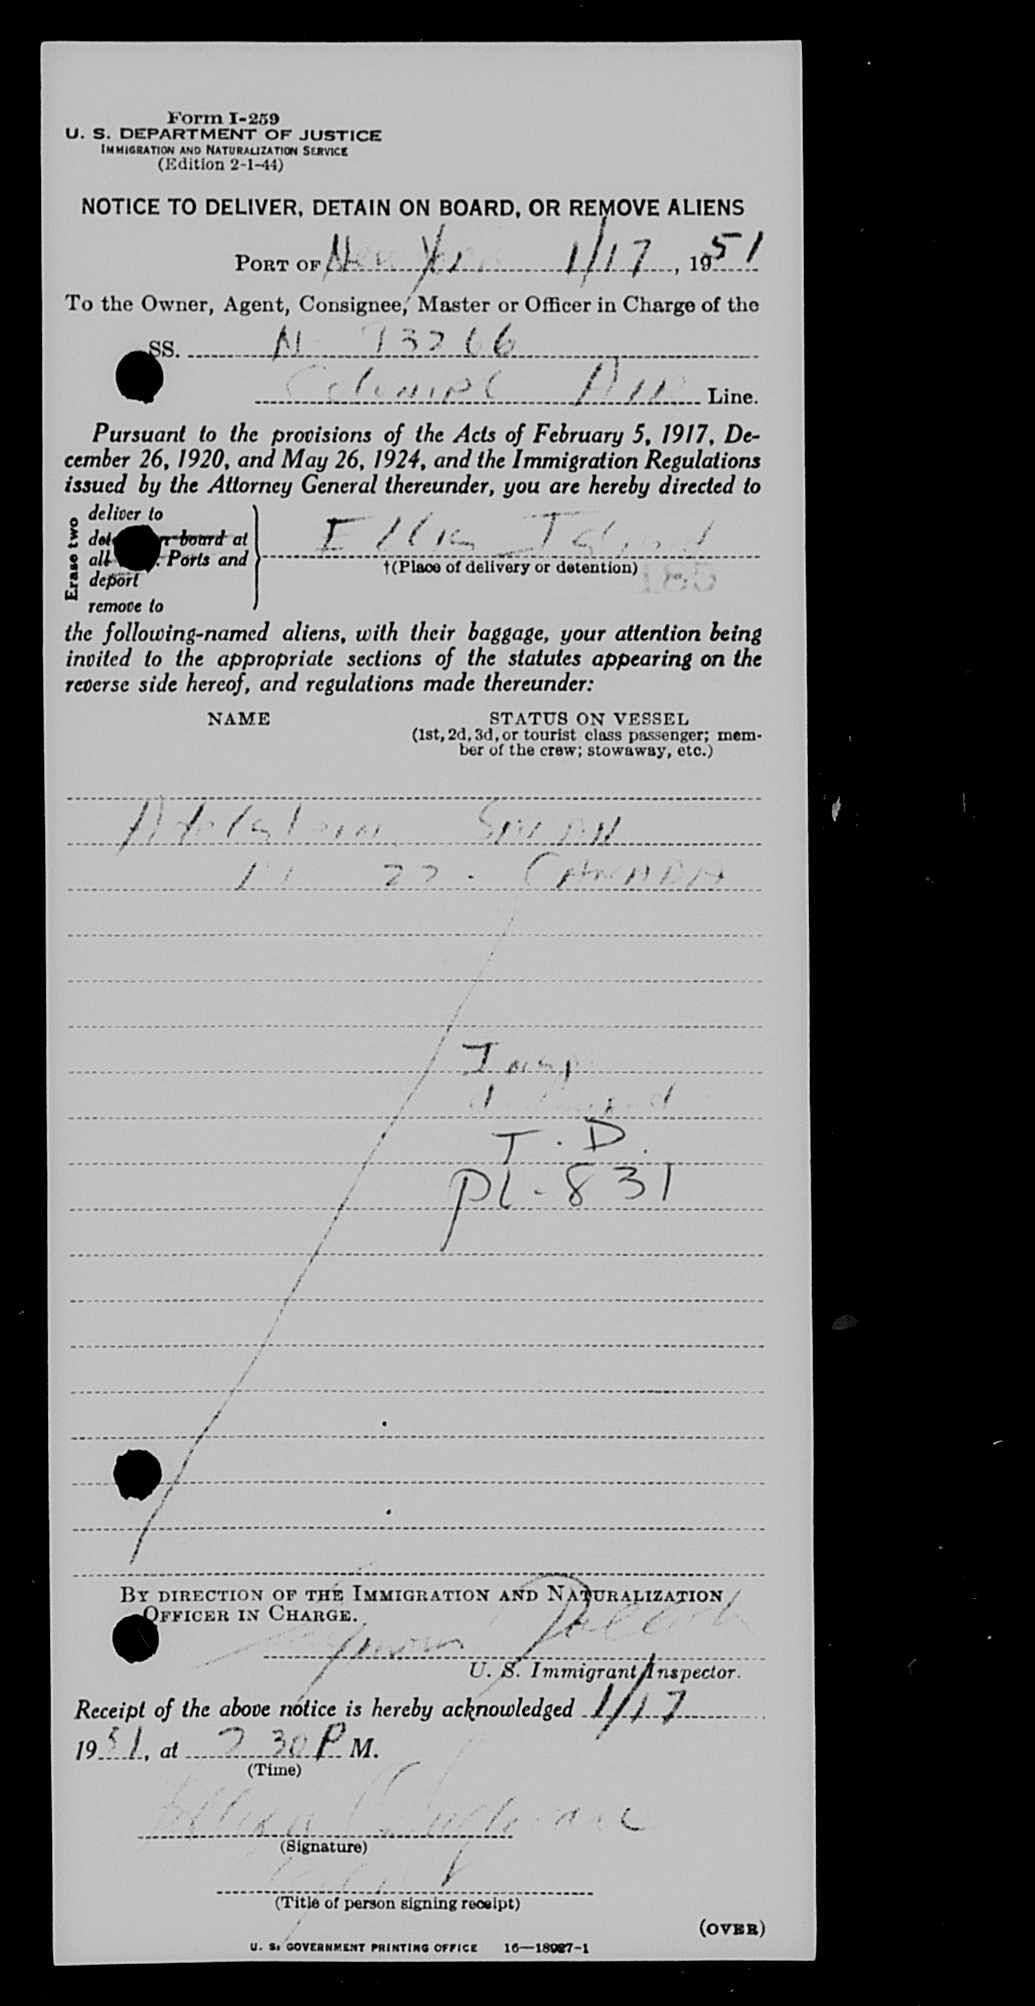 Form I-259
U. S. DEPARTMENT OF JUSTICE
IMMIGRATION AND NATURALIZATION SERVICE
(Edition 2-1-44)
NOTICE TO DELIVER, DETAIN ON BOARD, OR REMOVE ALIENS
PORT OF New York 1/17, 1951
To the Owner, Agent, Consignee, Master or Officer in Charge of the
SS. N 93266
Colonial Air Line.
Pursuant to the provisions of the Acts of February 5, 1917, De-
cember 26, 1920, and May 26, 1924, and the Immigration Regulations
issued by the Attorney General thereunder, you are hereby directed to
Erase two
deliver to
board at
all Ports and
deport
remove to
Ellis Island
†(Place of delivery or detention)
the following-named aliens, with their baggage, your attention being
invited to the appropriate sections of the statutes appearing on the
reverse side hereof, and regulations made thereunder:
NAME STATUS ON VESSEL
(1st, 2d, 3d, or tourist class passenger; mem-
ber of the crew; stowaway, etc.)
22. CANADA
T. D.
PL-831
BY DIRECTION OF THE IMMIGRATION AND NATURALIZATION
OFFICER IN CHARGE.
Seymour
U. S. Immigrant Inspector.
Receipt of the above notice is hereby acknowledged 1/17
1951, at 7 30 P M.
(Time)
(Signature)
(Title of person signing receipt)
(OVER)
U. S. GOVERNMENT PRINTING OFFICE 16—18927-1